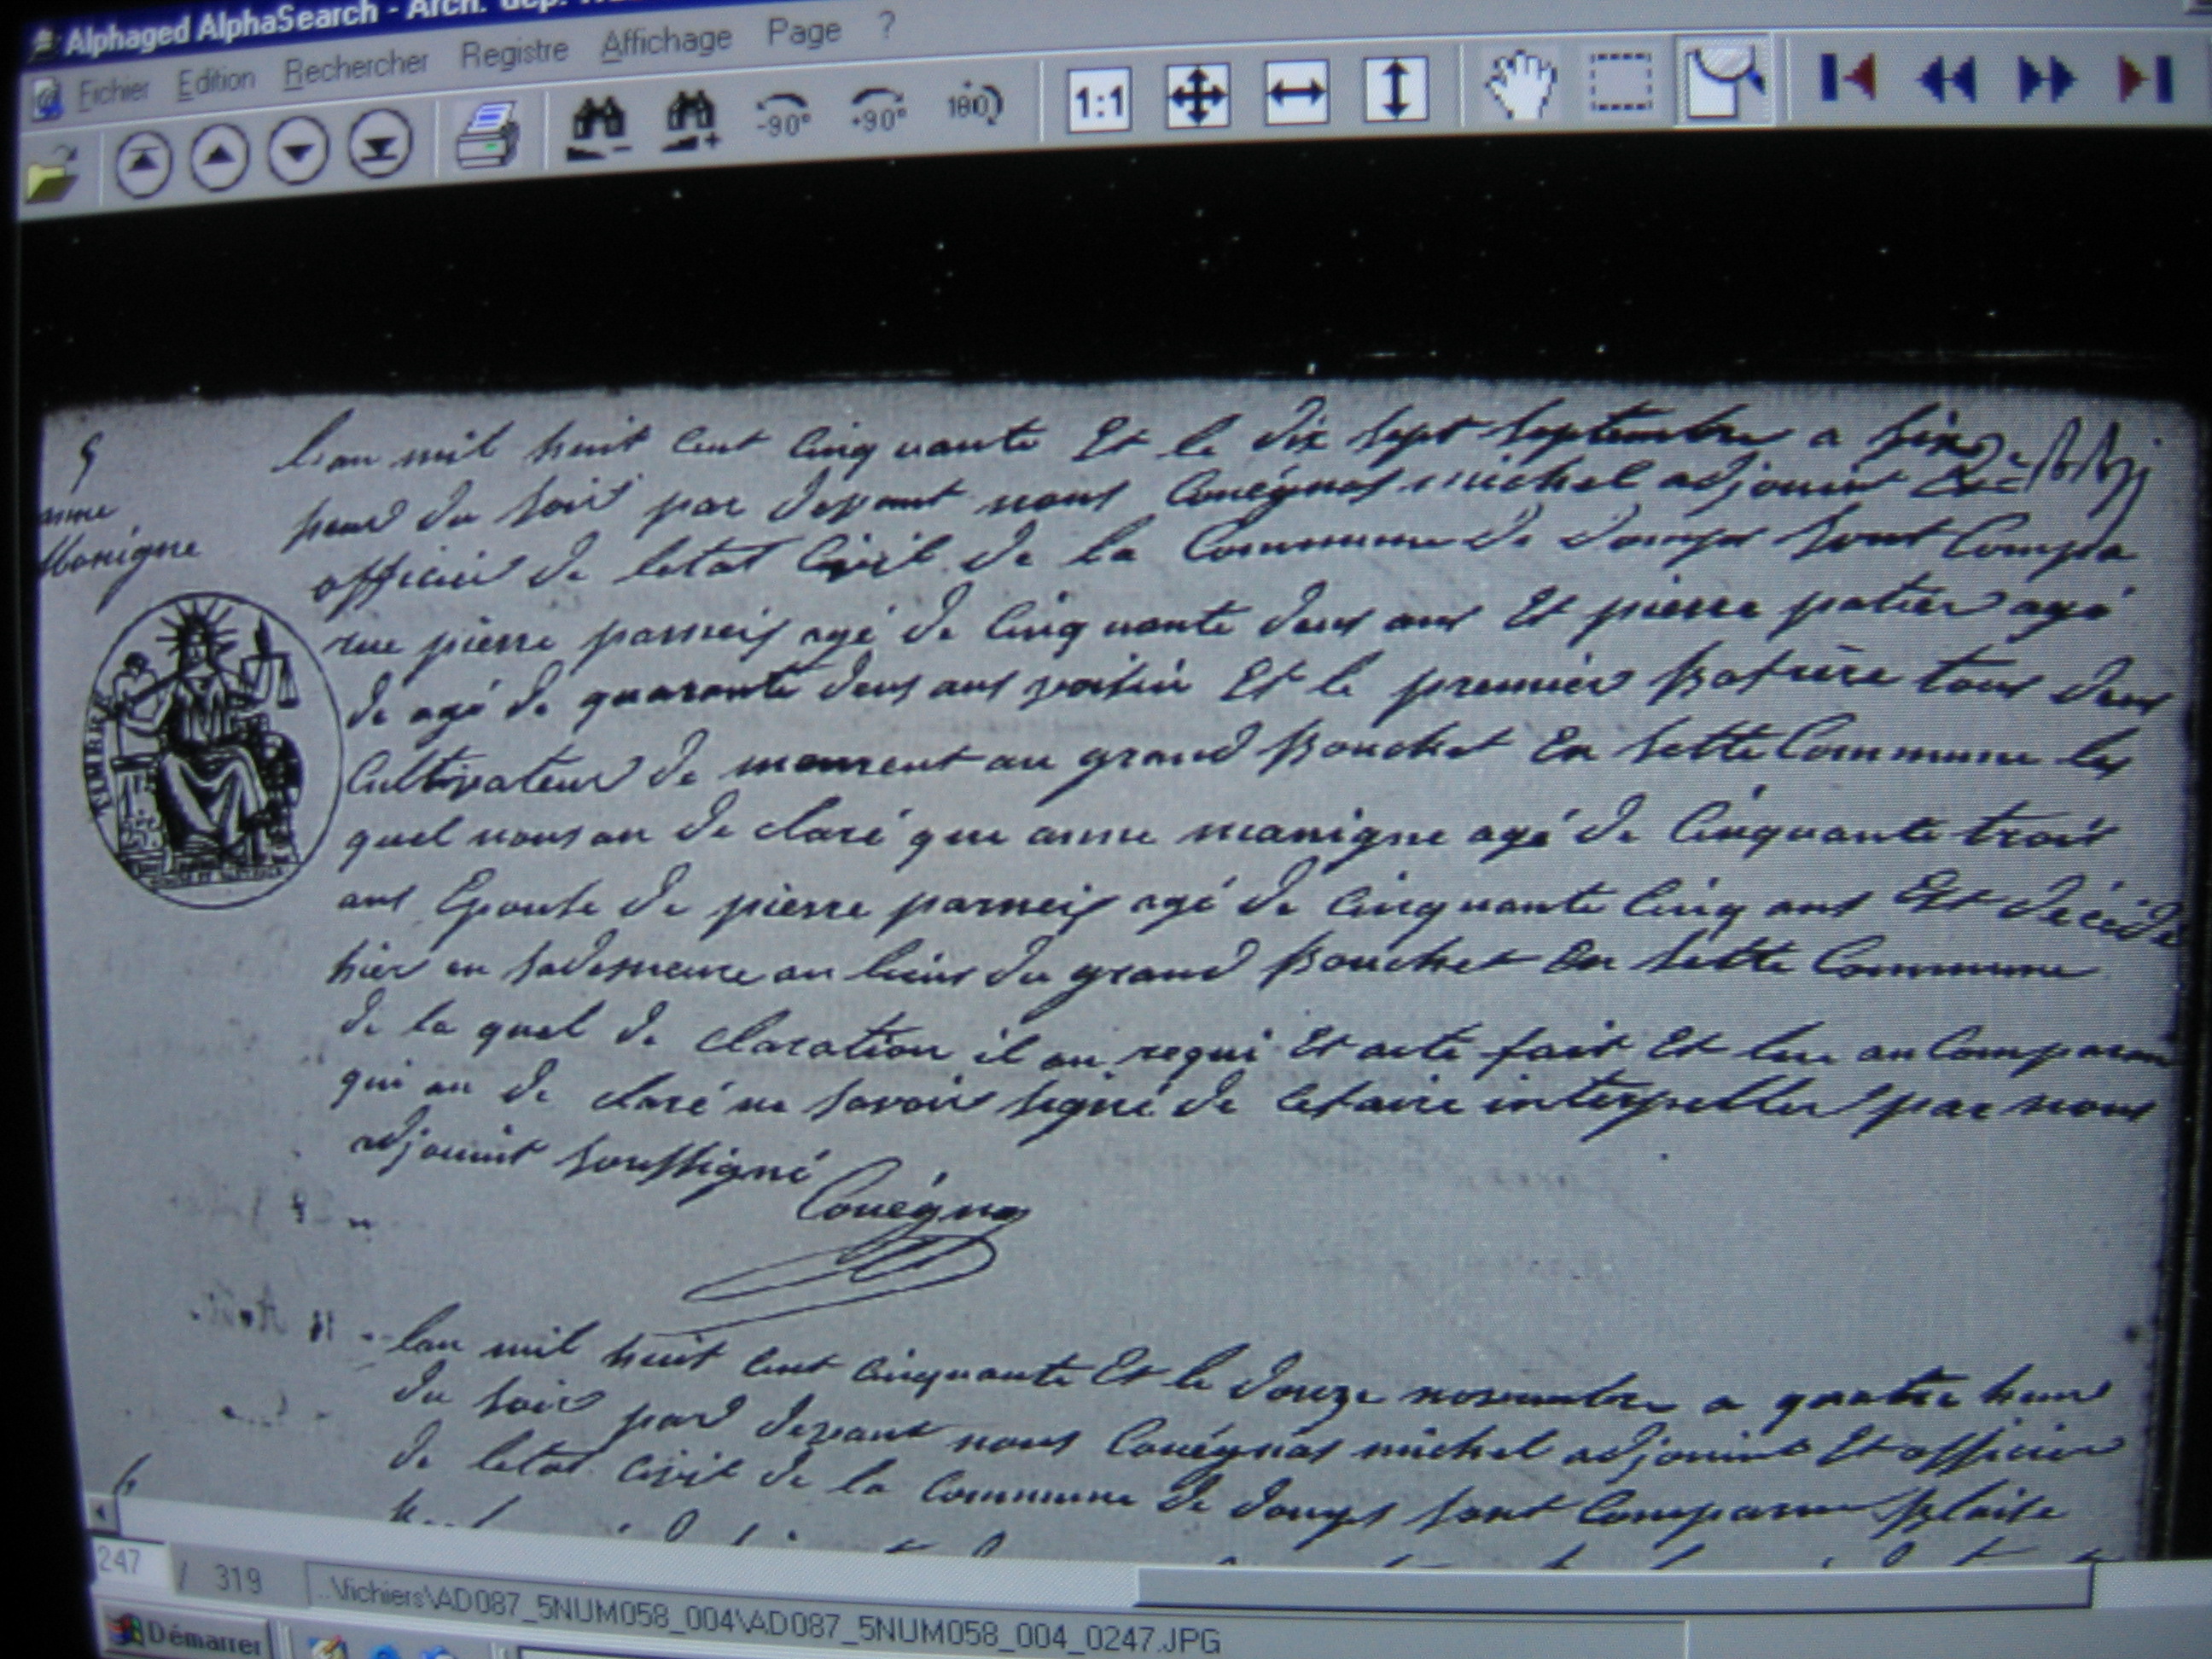 Alphaged AlphaSearch - Arch. dép.
Fichier Edition Rechercher Registre Affichage Page ?
-90° +90° 180 1:1
5
anne
Manigne
TIMBRE
Lan mil huit cent cinquante Et le dix sept septembre a six
heur du soir par devant nous Couégnas michel adjouint
officier de letat Civil de la Commune de domps sont Compa
rue pierre parneix agé de Cinquante deux ans Et pierre patier agé
de agé de quarante deux ans voisin Et le premier tous deux
Cultivateur de meurent au grand Bouchet En sette Commune les
quel nous on de claré que anne manigne agé de Cinquante trois
ans Epouse de pierre parneix agé de Cinquante Cinq ans Est décédé
hier en sademeure au lieux du grand Bouchet En sette Commune
de la quel de claration il on requi Et acte fait Et lue au Comparan
qui on de claré ne savoir signé de interpeller par nous
adjouint soussigné
Couégnas
11 Août
Lan mil huit cent cinquante Et le douze novembre a quatre heur
du soir par devant nous Couégnas michel adjouint Et officier
de letat civil de la Commune de domps sont Comparue Blaise
6
247 / 319 ..\fichiers\AD087_5NUM058_004\AD087_5NUM058_004_0247.JPG
Démarrer